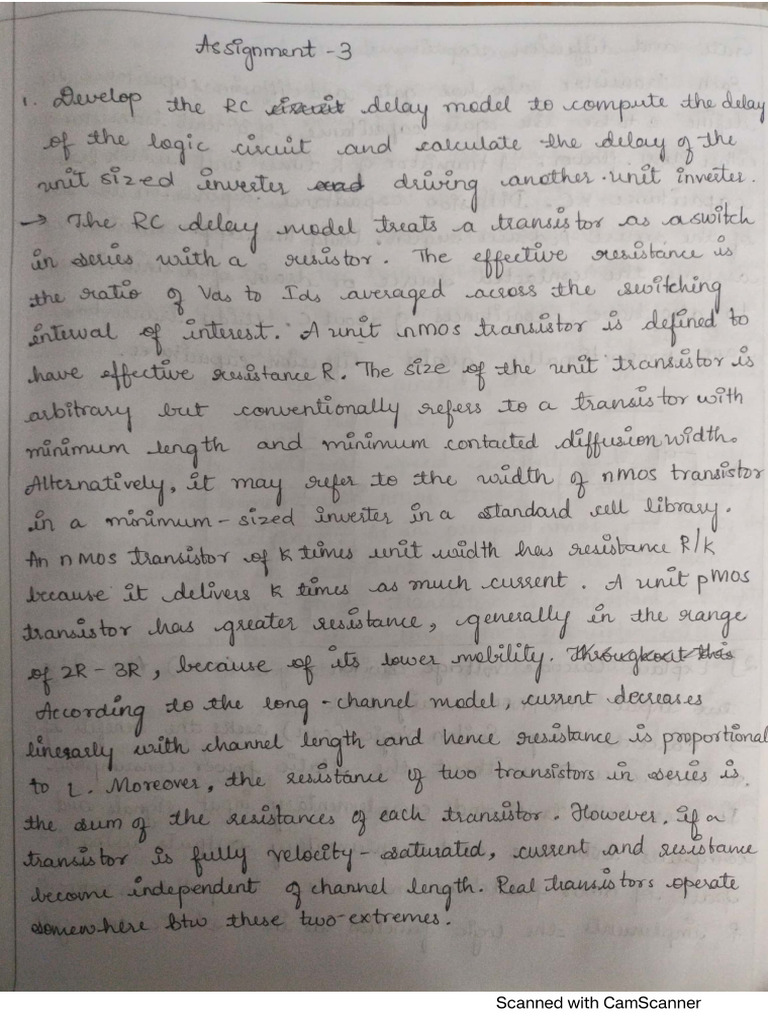 Assignment - 3
1. Develop the RC circuit delay model to compute the delay
of the logic circuit and calculate the delay of the
unit sized inverter driving another unit inverter.
→ The RC delay model treats a transistor as a switch
in series with a resistor. The effective resistance is
the ratio of Vds to Ids averaged across the switching
interval of interest. A unit nmos transistor is defined to
have effective resistance R. The size of the unit transistor is
arbitrary but conventionally refers to a transistor with
minimum length and minimum contacted diffusion width.
Alternatively, it may refer to the width of nmos transistor
in a minimum-sized inverter in a standard cell library.
An nmos transistor of k times unit width has resistance R/k
because it delivers k times as much current. A unit pmos
transistor has greater resistance, generally in the range
of 2R-3R, because of its lower mobility. Throughout this
According to the long-channel model, current decreases
linearly with channel length and hence resistance is proportional
to L. Moreover, the resistance of two transistors in series is
the sum of the resistances of each transistor. However, if a
transistor is fully velocity-saturated, current and resistance
become independent of channel length. Real transistors operate
somewhere btw these two-extremes.
Scanned with CamScanner